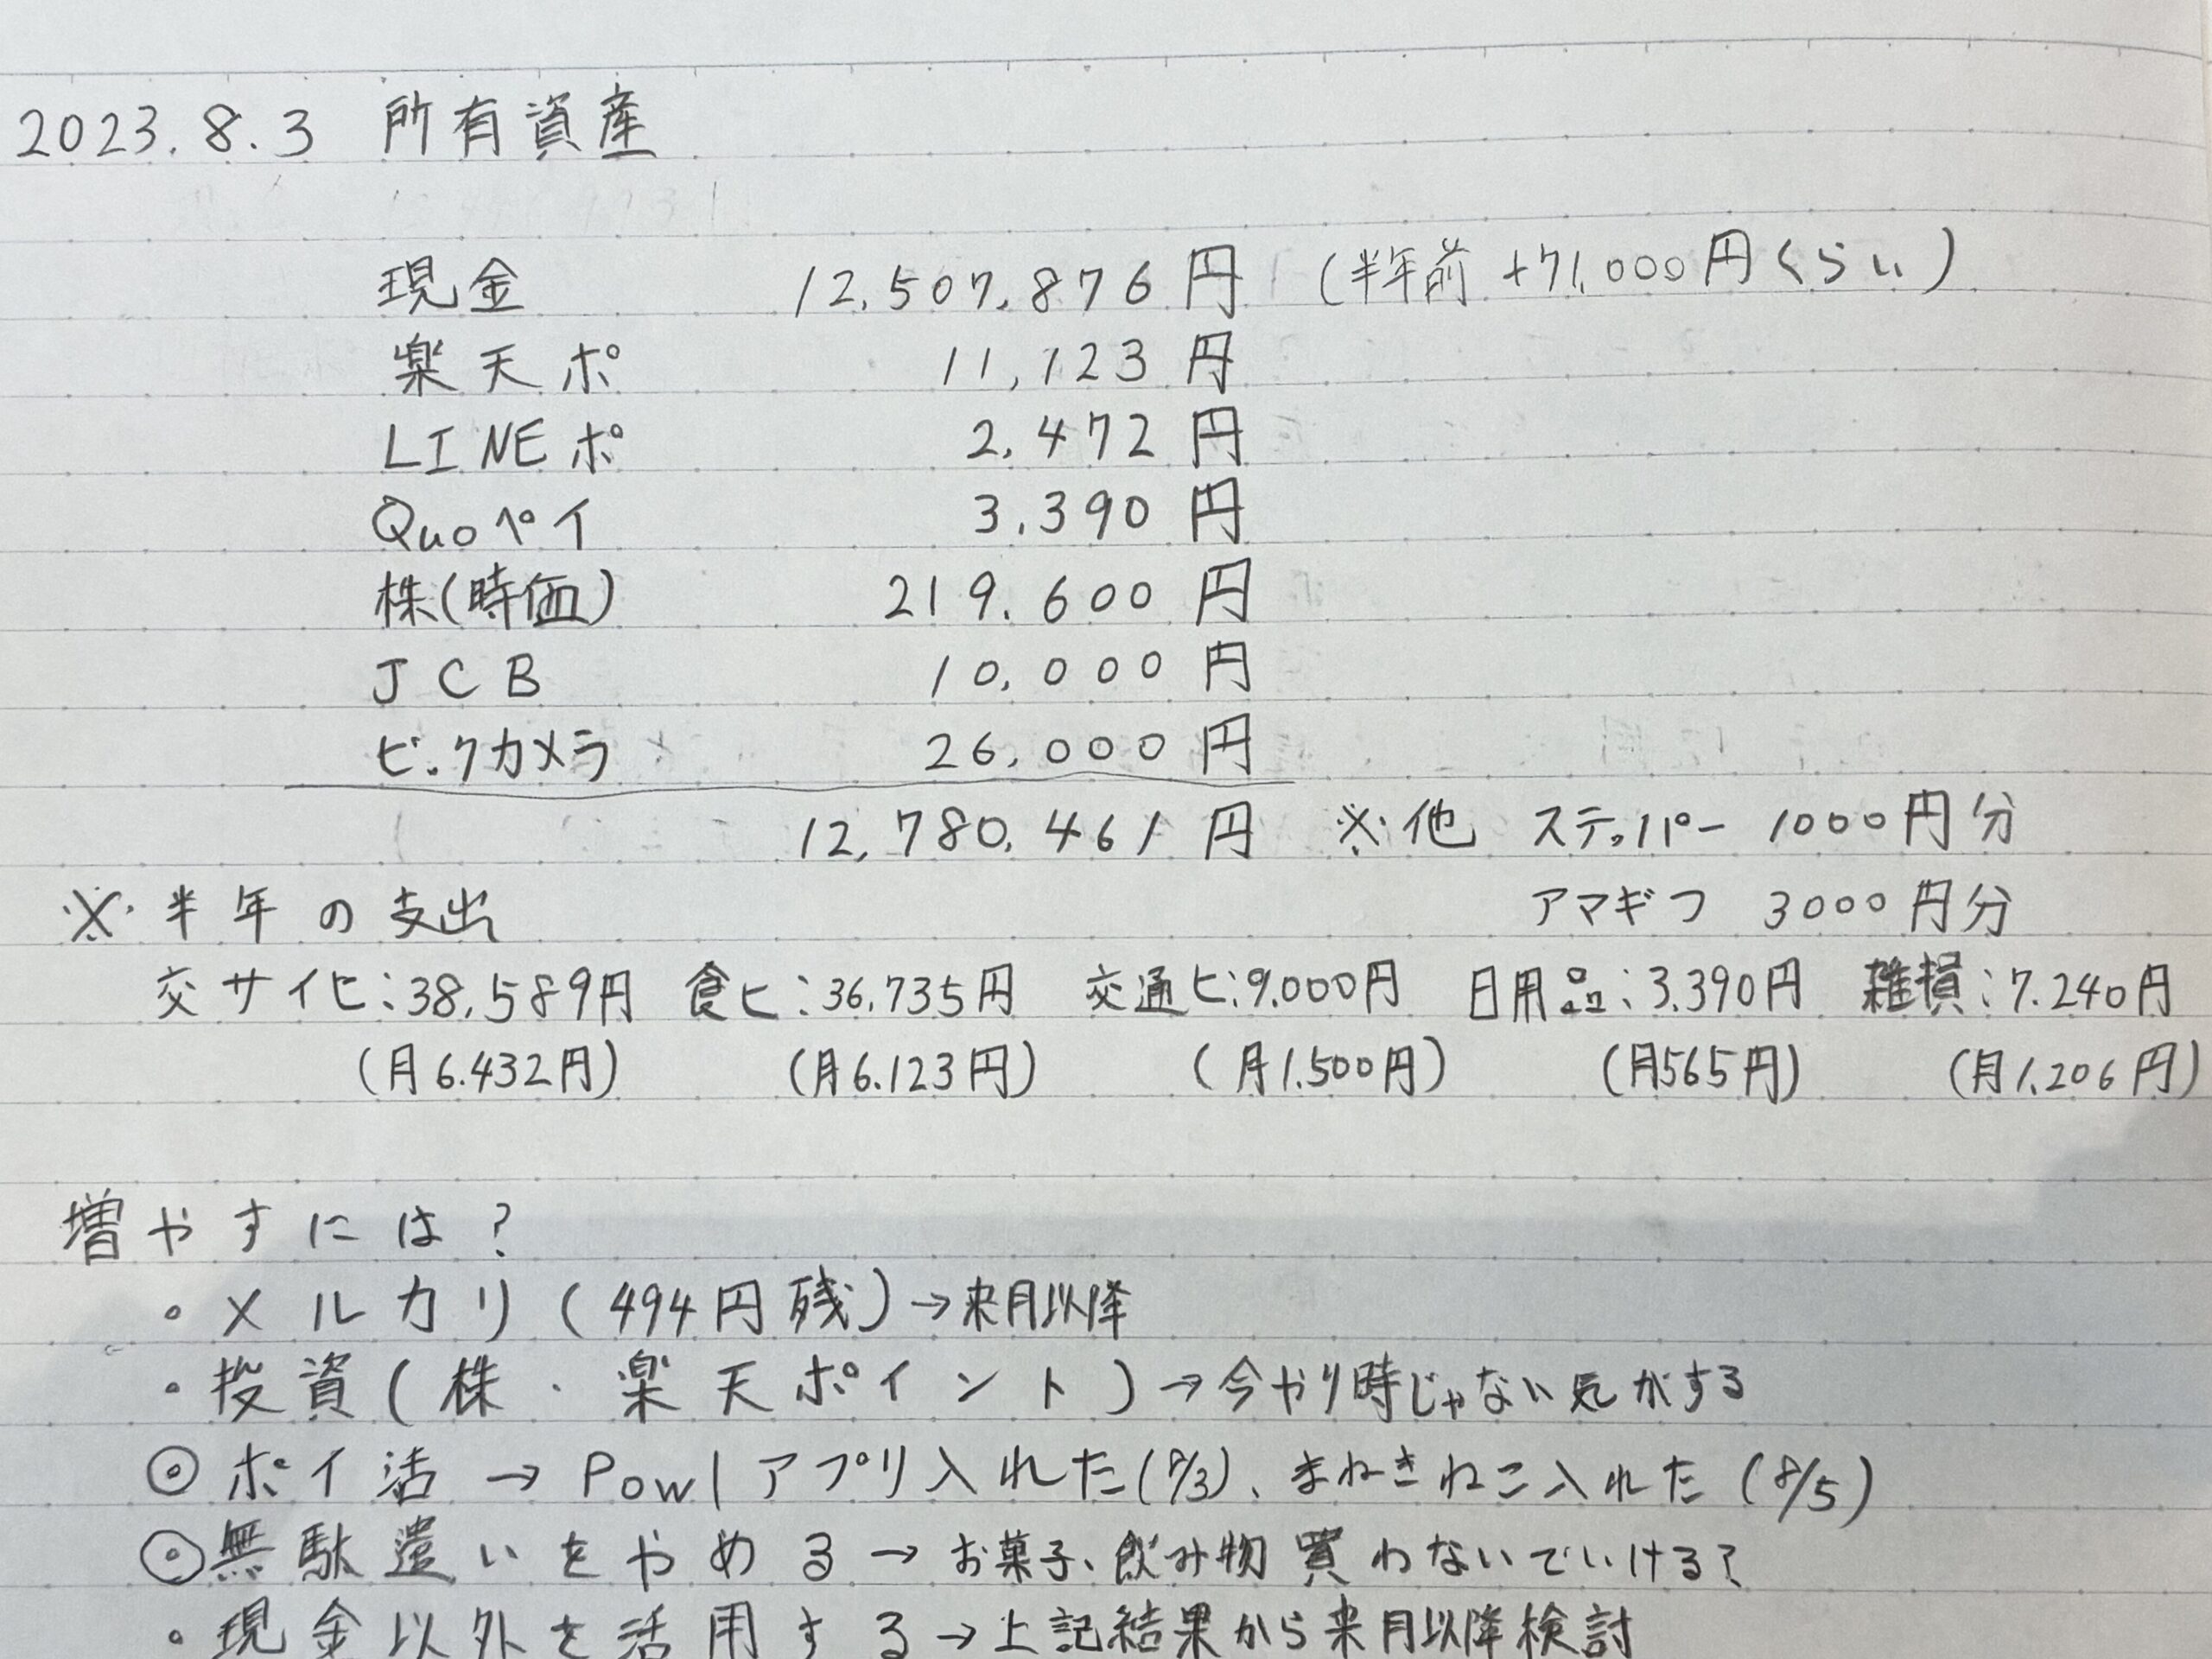 2023.8.3 所有資産
現金 12,507,876円 (半年前 +71,000円くらい)
楽天ポ 11,123円
LINEポ 2,472円
Quoペイ 3,390円
株(時価) 219,600円
JCB 10,000円
ビックカメラ 26,000円
12,780,461円 ※他 ステッパー 1000円分
※半年の支出 アマギフ 3000円分
交サイヒ:38,589円 食ヒ:36,735円 交通ヒ:9,000円 日用品:3,390円 雑損:7,240円
(月6,432円) (月6,123円) (月1,500円) (月565円) (月1,206円)
増やすには?
・メルカリ(494円残)→来月以降
・投資(株・楽天ポイント)→今やり時じゃない気がする
◎ポイ活→Powlアプリ入れた(8/3)、まねきねこ入れた(8/5)
◎無駄遣いをやめる→お菓子、飲み物買わないでいける?
・現金以外を活用する→上記結果から来月以降検討